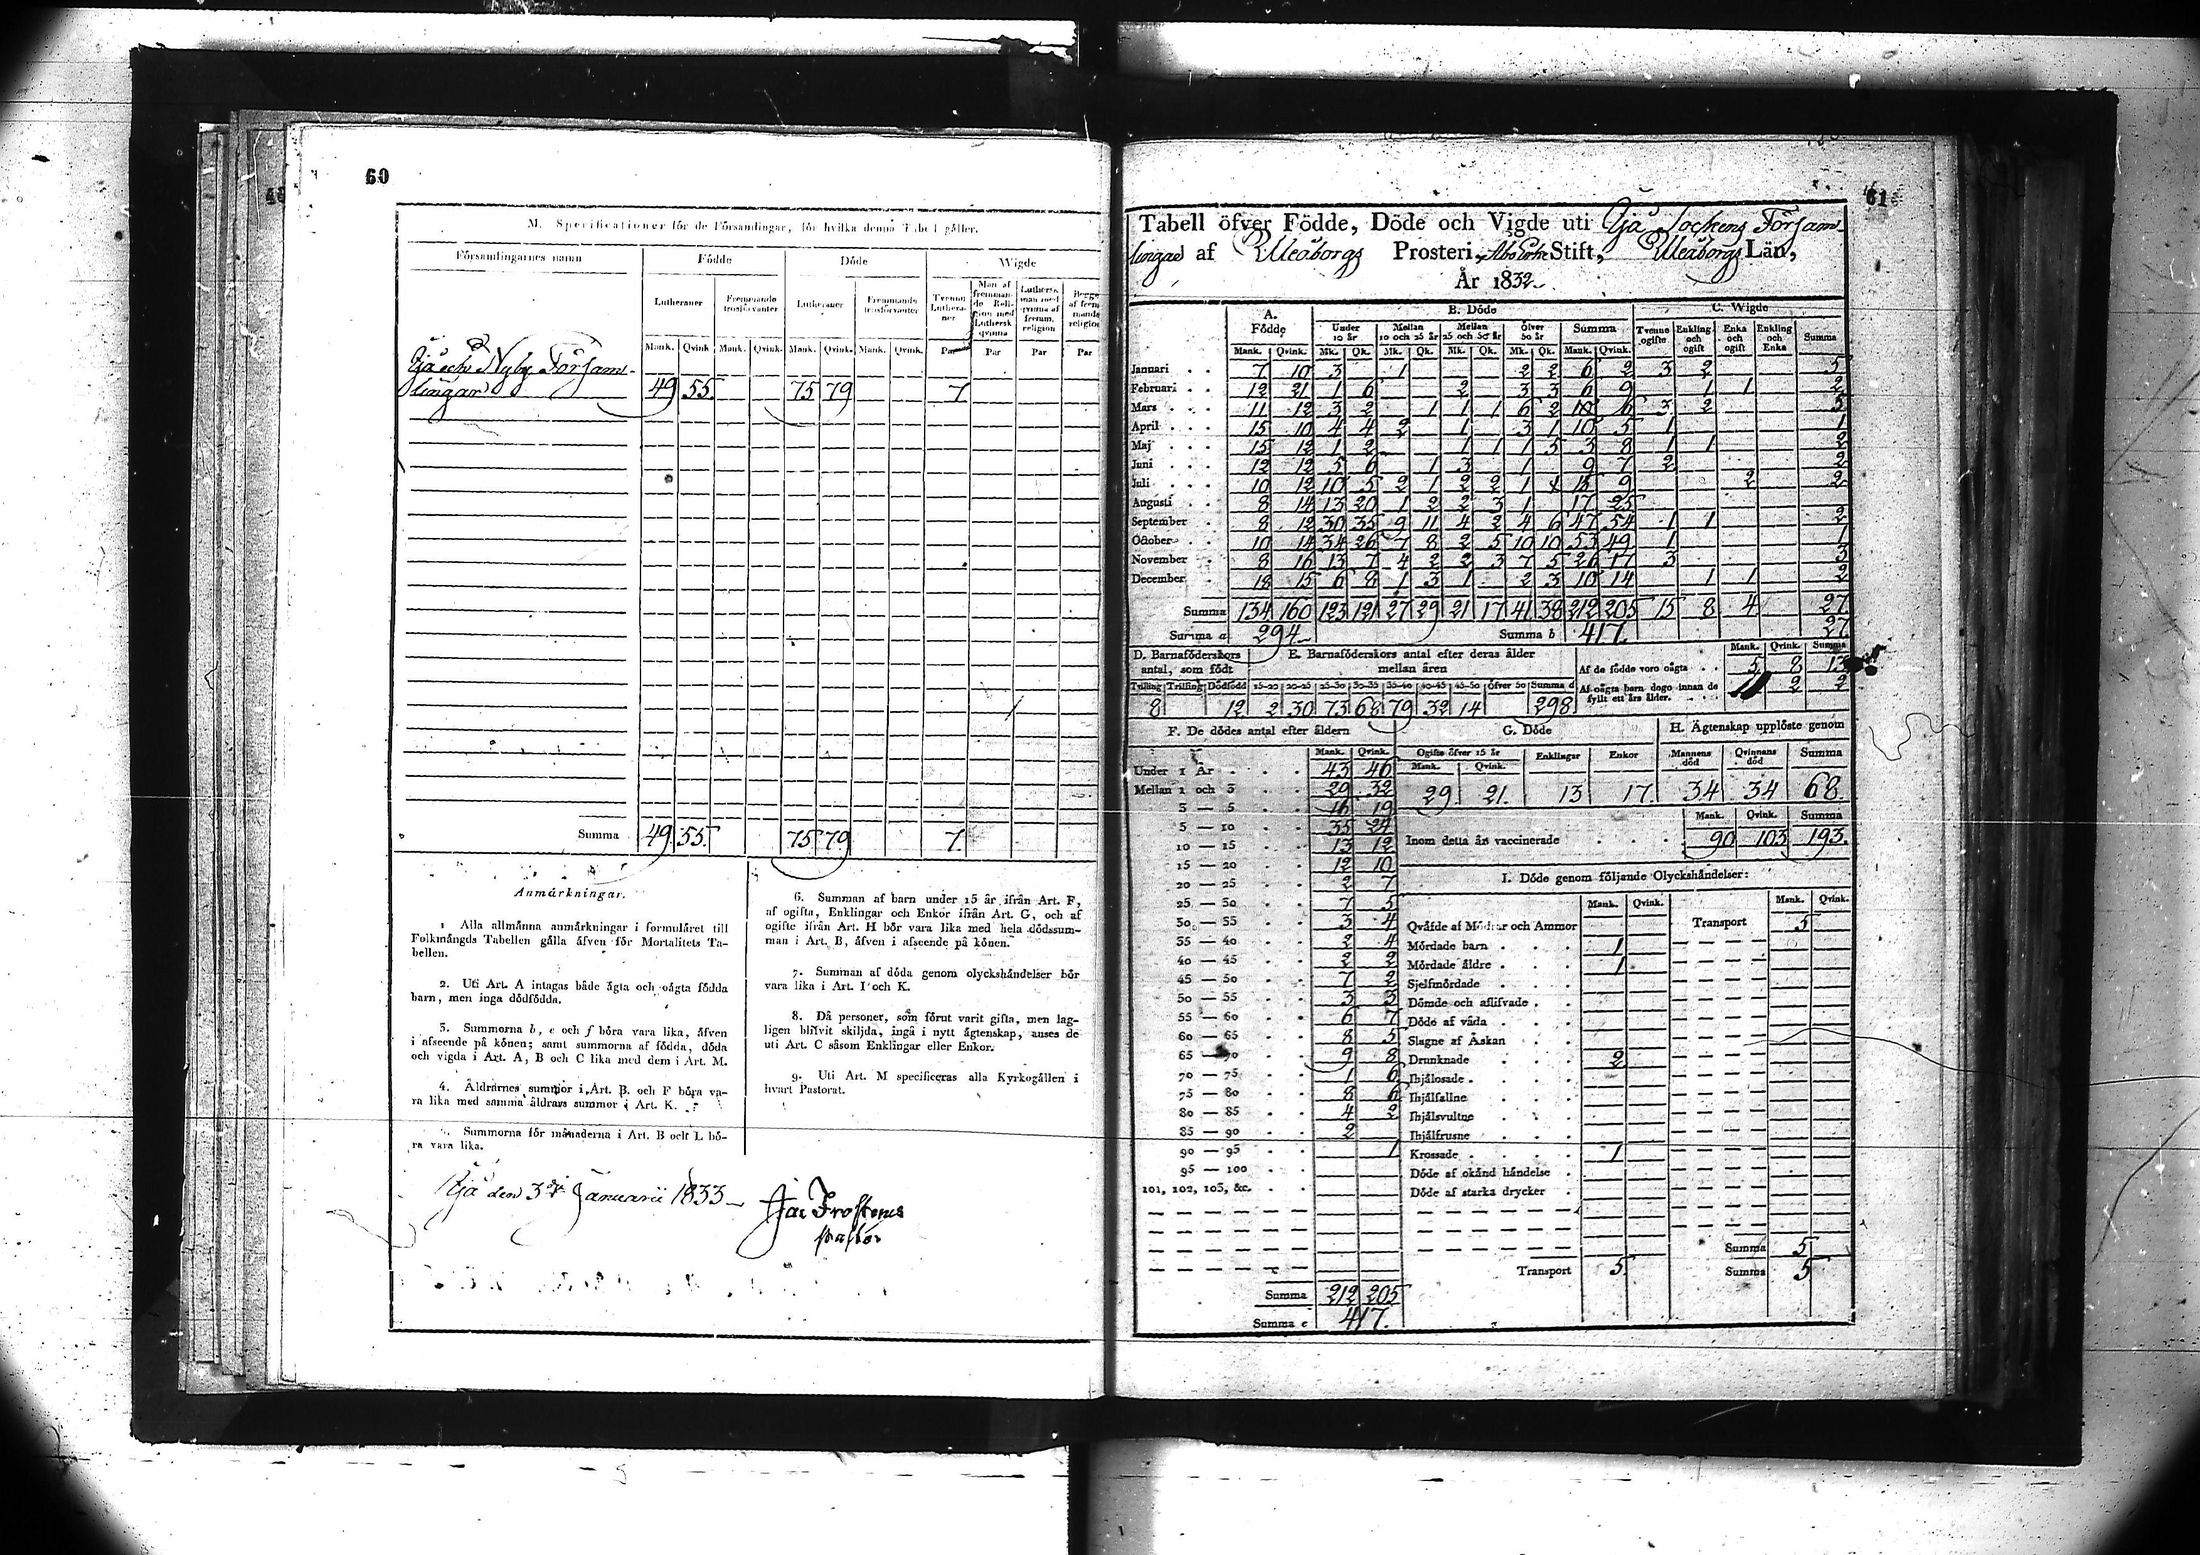 60
M. Specificationer för de Församlingar, för hvilka denna Tabel gäller.
Församlingarnes namn Födde Döde Wigde
Lutheraner Fremmande trosförvanter Lutheraner Fremmande trosförvanter Tvenne Lutheraner Man af fremmande Religion med Luthersk qvinna Luthersk man med qvinna af fremm. religion
Mank. Qvink. Mank. Qvink. Mank. Qvink. Mank. Qvink. Par Par Par Par
Ijå och Nyby Försam-
lingar 49 55 75 79 7
Summa 49 55. 75 79 7.
Anmärkningar.
1 Alla allmänna anmärkningar i formuläret till
Folkmängds Tabellen gälla äfven för Mortalitets Ta-
bellen.
2. Uti Art. A intagas både ägta och oägta födda
barn, men inga dödfödda.
3. Summorna b, e och f böra vara lika, äfven
i afseende på könen; samt summorna af födda, döda
och vigda i Art. A, B och C lika med dem i Art. M.
4. Åldrarnes summor i Art. B. och F böra va-
ra lika med samma åldrars summor i Art. K.
Summorna för månaderna i Art. B och L bö-
ra vara lika.
6. Summan af barn under 15 år ifrån Art. F,
af ogifta, Enklingar och Enkor ifrån Art. G, och af
ogifte ifrån Art. H bör vara lika med hela dödssum-
man i Art. B, äfven i afseende på könen.
7. Summan af döda genom olyckshändelser bör
vara lika i Art. I och K.
8. Då personer, som förut varit gifta, men lag-
ligen blifvit skiljda, ingå i nytt ägtenskap, anses de
uti Art. C såsom Enklingar eller Enkor.
9. Uti Art. M specificeras alla Kyrkogällen i
hvart Pastorat.
Ijå den 3 Januarii 1833
Frosterus
pastor
61
Tabell öfver Födde, Döde och Vigde uti Ijå Sockens Försam-
lingar af Uleåborgs Prosteri, Åbo Erke Stift, Uleåborgs Län,
År 1832
A. Födde B. Döde C. Wigde
Under 10 år Mellan 10 och 25 år Mellan 25 och 50 år Öfver 50 år Summa Tvenne ogifte Enkling och ogift Enka och ogift Enkling och Enka Summa
Mank. Qvink. Mk. Qk. Mk. Qk. Mk. Qk. Mk. Qk. Mank. Qvink.
Januari 7 10 3 1 2 2 6 2 3 2 5
Februari 12 21 1 6 2 3 3 6 9 1 1 2
Mars 11 12 3 2 1 1 1 6 2 10 6 3 2 5
April 15 10 4 4 2 1 3 1 10 5 1 1
Maj 15 12 1 2 1 1 1 5 3 8 1 1 2
Juni 12 12 5 6 1 3 1 9 7 2 2
Juli 10 12 10 5 2 1 2 2 1 1 15 9 2 2
Augusti 8 14 13 20 1 2 2 3 1 17 25
September 8 12 30 35 9 11 4 2 4 6 47 54 1 1 2
October 10 14 34 26 7 8 2 5 10 10 53 49 1 1
November 8 16 13 7 4 2 2 3 7 5 26 17 3 3
December 18 15 6 8 1 3 1 2 3 10 14 1 1 2
Summa 134 160 123 121 27 29 21 17 41 38 212 205 15 8 4 27
Summa a 294 Summa b 417. 27.
D. Barnaföderskors antal, som födt E. Barnaföderskors antal efter deras ålder mellan åren
Mank. Qvink. Summa
Af de födde voro oägta 5 8 13
Af oägta barn dogo innan de fyllt ett års ålder. 2 2
Tvilling Trilling Dödfödd 15-20 20-25 25-30 30-35 35-40 40-45 45-50 öfver 50 Summa d
8 12 2 30 73 68 79 32 14 298
F. De dödes antal efter åldern G. Döde H. Ägtenskap upplöste genom
Mank. Qvink. Ogifte öfver 15 år Enklingar Enkor Mannens död Qvinnans död Summa
Mank. Qvink.
29 21. 13 17. 34 34 68.
Mank. Qvink. Summa
Inom detta år vaccinerade 90 103 193.
Under 1 År 43 46
Mellan 1 och 3 29 32
3 — 5 16 19
5 — 10 35 24
10 — 15 13 12
15 — 20 12 10
20 — 25 2 7
25 — 30 7 5
30 — 35 3 4
35 — 40 2 4
40 — 45 2 2
45 — 50 7 2
50 — 55 3 3
55 — 60 6 7
60 — 65 8 5
65 — 70 9 8
70 — 75 1 6
75 — 80 8 6
80 — 85 4 2
85 — 90 2
90 — 95 1
95 — 100
101, 102, 103, &c.
Summa 212 205
Summa e 417.
I. Döde genom följande Olyckshändelser:
Mank. Qvink. Mank. Qvink.
Qväfde af Mödrar och Ammor Transport 5
Mördade barn 1
Mördade äldre 1
Sjelfmördade
Dömde och aflifvade
Döde af våda
Slagne af Åskan
Drunknade 2
Ihjälosade
Ihjälfallne
Ihjälsvultne
Ihjälfrusne
Krossade 1
Döde af okänd händelse
Döde af starka drycker
Summa 5
Transport 5 Summa 5